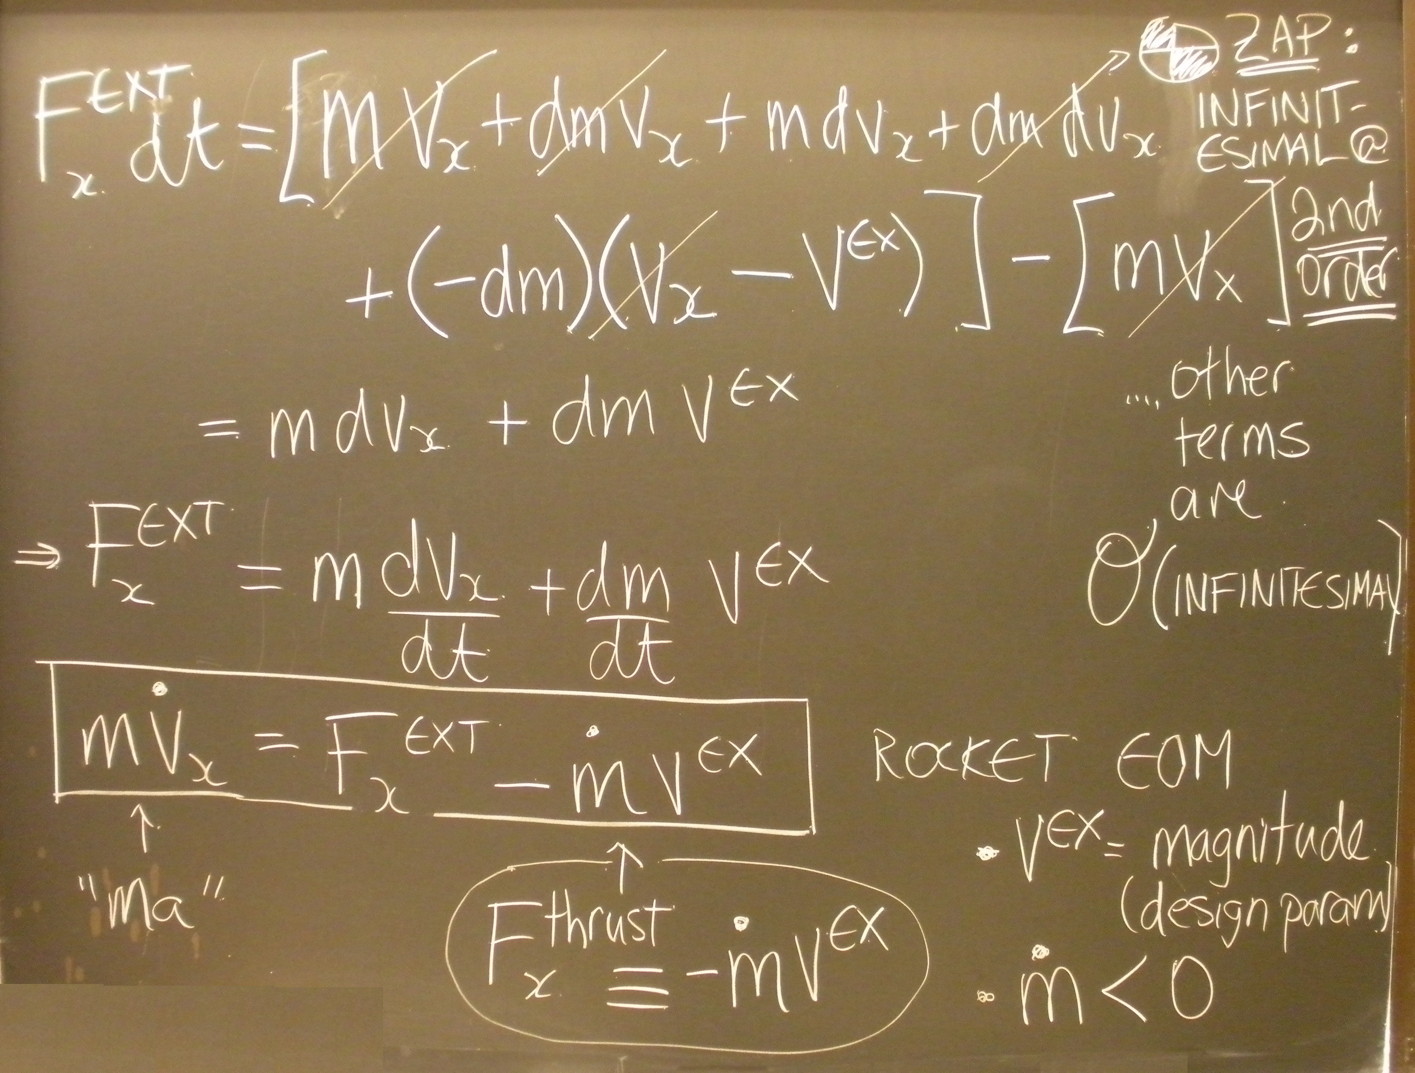 F_x^EXT dt = [m v_x + dm v_x + m dv_x + dm dv_x
+ (-dm)(v_x - v^EX)] - [m v_x]
ZAP:
INFINIT-
ESIMAL @
2nd
order
= m dv_x + dm v^EX
..., other
terms
are
O(INFINITESIMAL)
⇒ F_x^EXT = m dv_x/dt + dm/dt v^EX
m v̇_x = F_x^EXT - ṁ v^EX
ROCKET EOM
↑
"ma"
↑
F_x^thrust ≡ -ṁ v^EX
• v^EX = magnitude
(design param)
• ṁ < 0